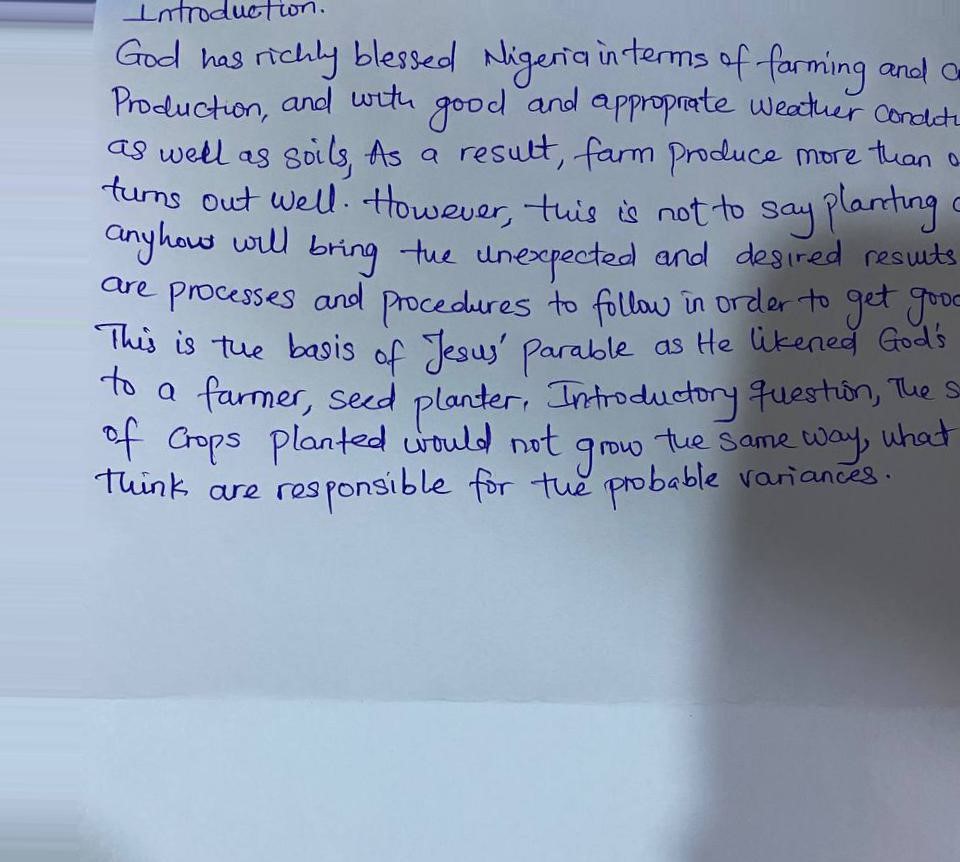 Introduction.
God has richly blessed Nigeria in terms of farming and
Production, and with good and appropriate weather
as well as soils, As a result, farm produce more than
turns out well. However, this is not to say planting
anyhow will bring the unexpected and desired results
are processes and procedures to follow in order to get
This is the basis of Jesus' parable as He likened God's
to a farmer, seed planter. Introductory question, The
of crops planted would not grow the same way, what
Think are responsible for the probable variances.